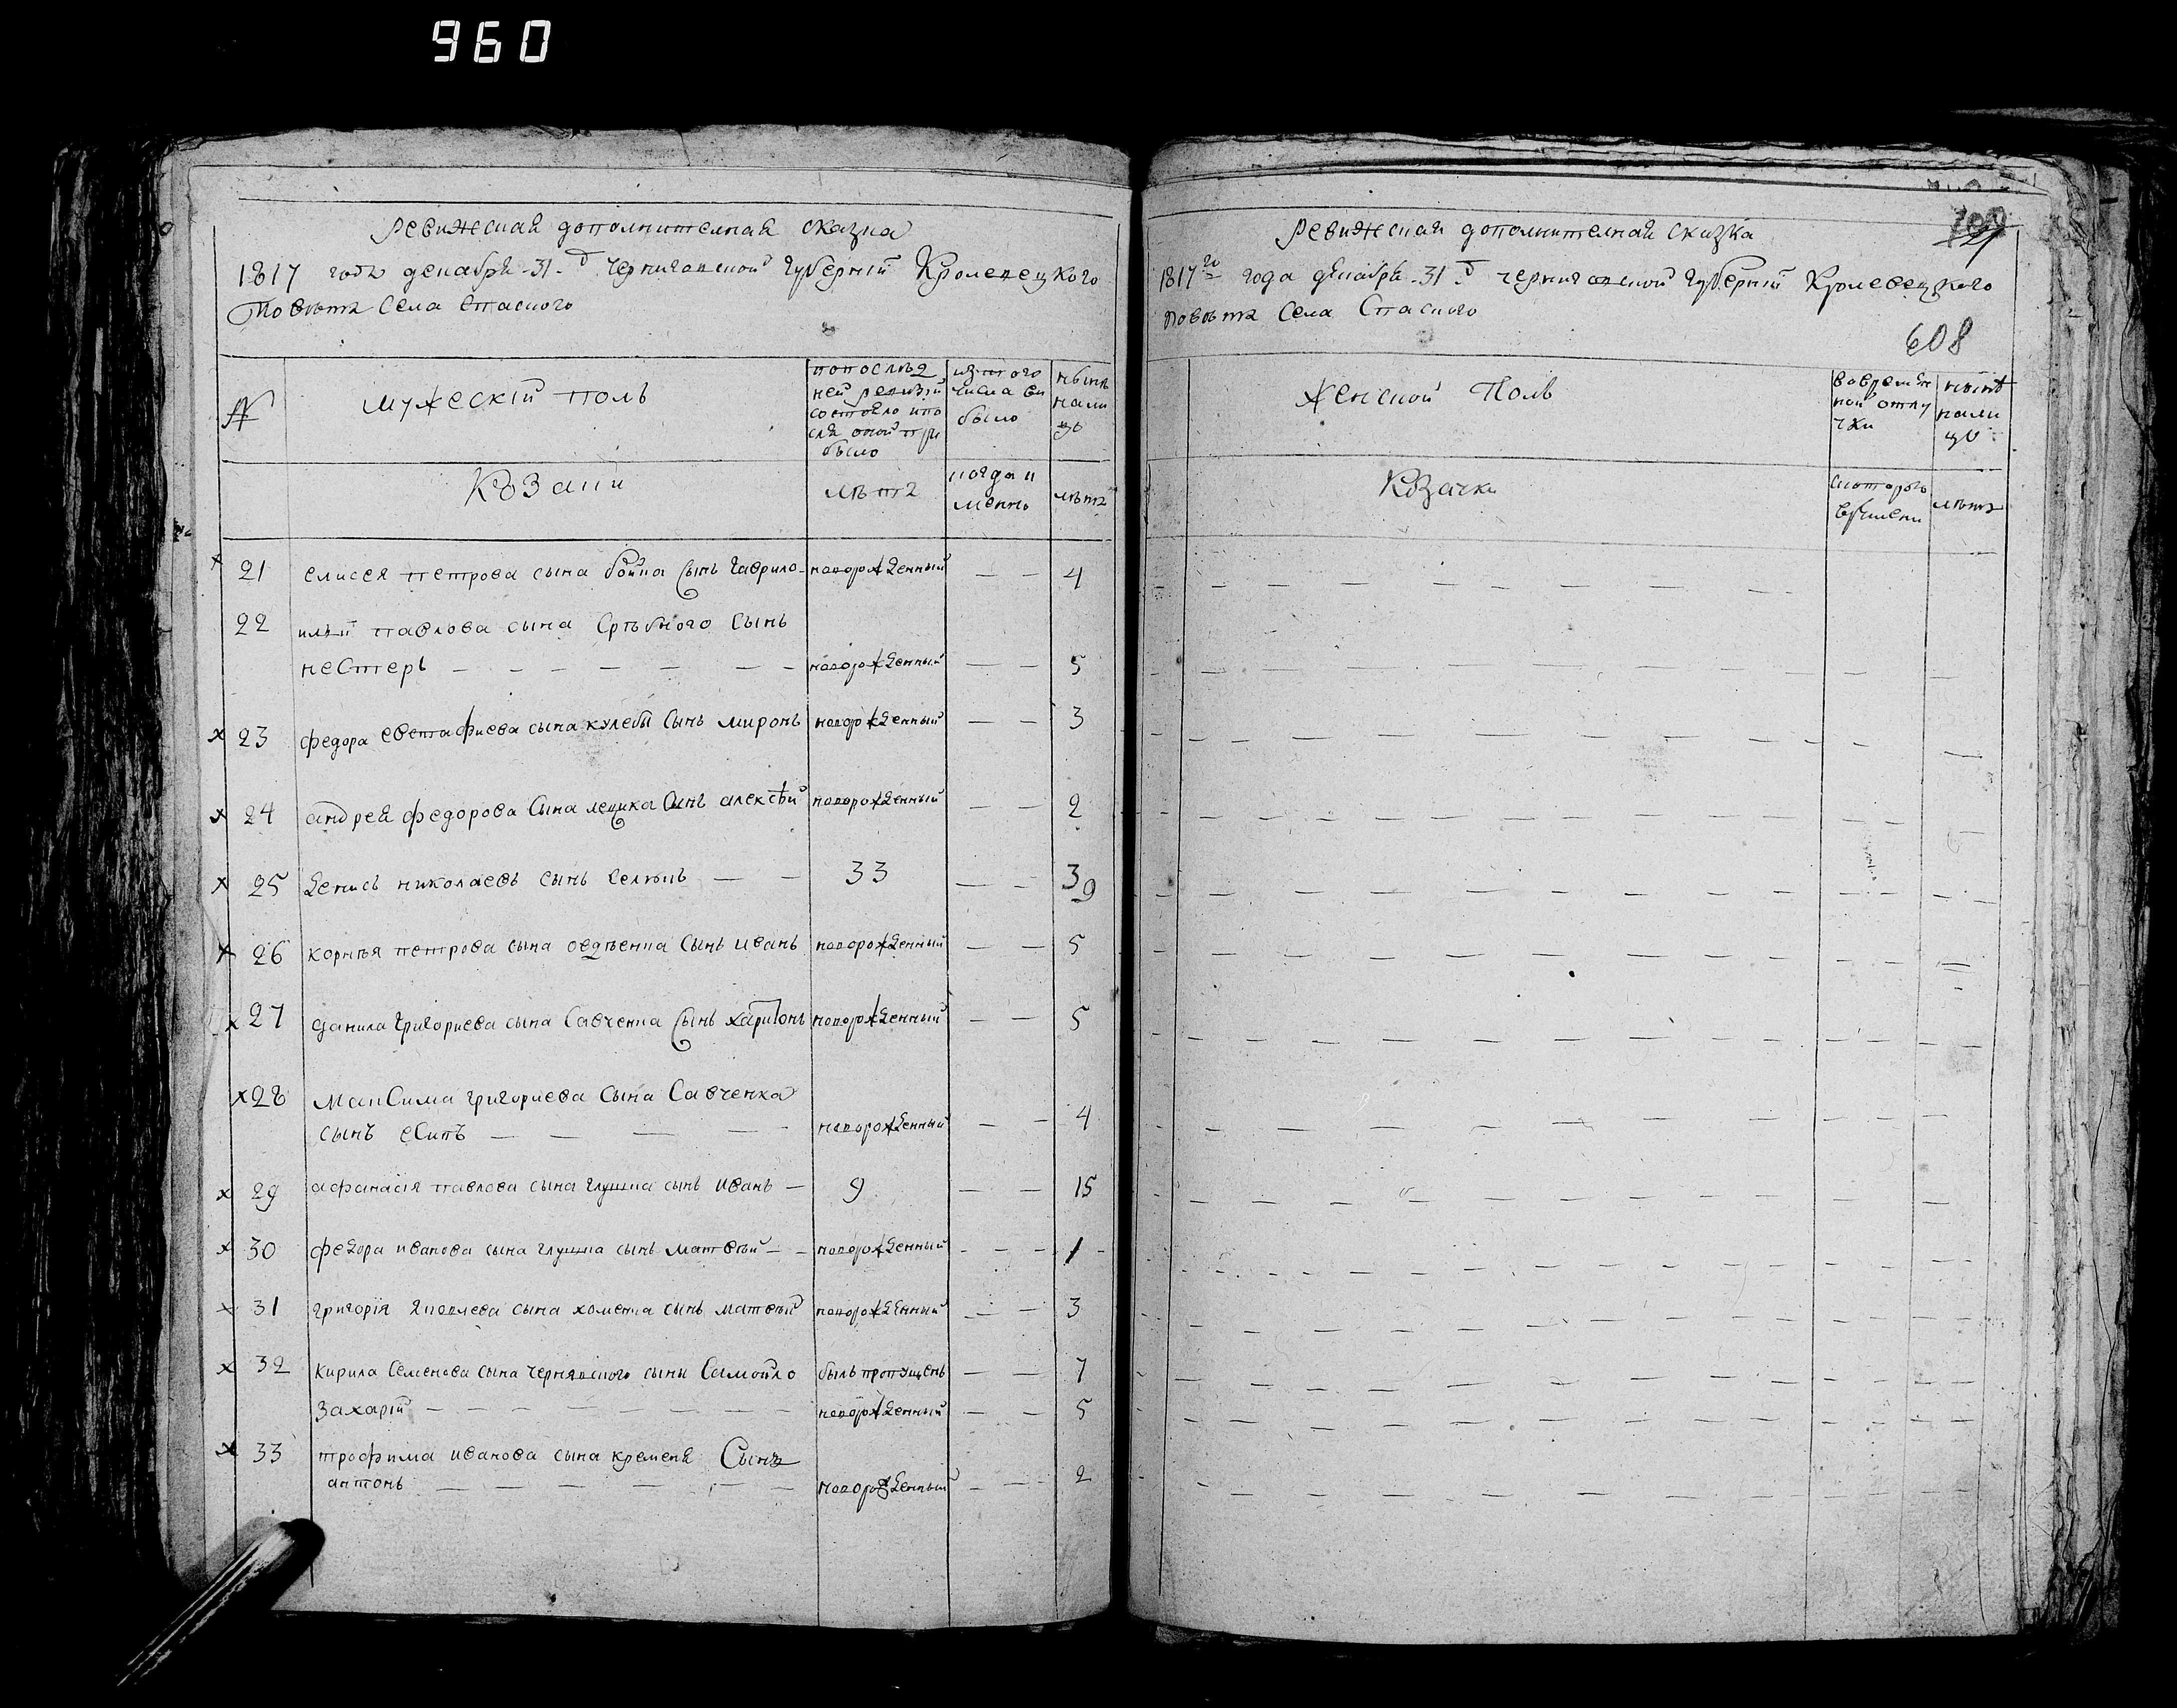 960
Ревижская дополнителная сказка
1817 года декабря 31-д Черниговской губернїи Кролевецкого
Повѣта Села Спаского
№
Мужескїй полъ
попослѣд
ней ревизїи
состояло и по
сля оной при
было
изтого
числа ви
было
нынѣ
нали
цо
Козаки
лѣтъ
когда и
менно
лѣтъ
x 21 елисея петрова сына бойка сынъ гаврило новорожденный — — 4
22 илїи павлова сына Срѣбного сынъ
нестеръ — — — — — — новорожденный — — 5
x 23 федора евстафиева сына кулебы сынъ миронъ новорожденный — — 3
x 24 андрея федорова сына лецика сынъ алексѣй новорожденный — — 2
x 25 денисъ николаевъ сынъ — — 33 — — 39
x 26 корнѣя петрова сына овдѣенка сынъ иванъ новорожденный — — 5
x 27 данила григориева сына Савченка сынъ харитонъ новорожденный — — 5
x 28 Максима григориева сына Савченка
сынъ есипъ — — — — новорожденный — — 4
x 29 афанасїя павлова сына глушка сынъ иванъ — 9 — — 15
x 30 федора иванова сына глушка сынъ матвѣй — — новорожденный — — — 1
x 31 григорїя яковлева сына хоменка сынъ матвѣй новорожденный — — 3
x 32 кирила Семенова сына чернявского сыны Самойло былъ пропущенъ — — 7
захарїй — — — — — — — новорожденный — — 5
x 33 трофима иванова сына кременя Сынъ
антонъ — — — — — — новорожденный — — — 2
Ревижская дополнителная сказка
1817го года декабря 31 д Черниговской губернїи Кролевецкого
повѣта Села Спаского
608
Женской Полъ
вовремен
ной отлу
чки
нынѣ
нали
цо
Козачки
скоторого
времени
лѣтъ